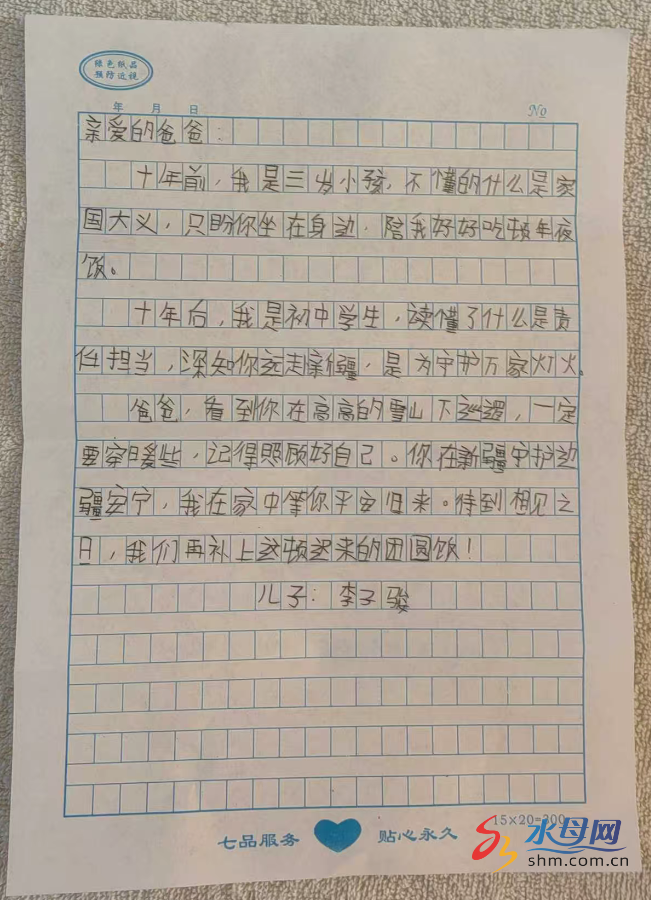 绿色纸品
预防近视
年 月 日 №
亲爱的爸爸:
十年前,我是三岁小孩,不懂的什么是家
国大义,只盼你坐在身边,陪我好好吃顿年夜
饭。
十年后,我是初中学生,读懂了什么是责
任担当,深知你远走新疆,是为守护万家灯火。
爸爸,看到你在高高的雪山下巡逻,一定
要穿暖些,记得照顾好自己。你在新疆守护边
疆安宁,我在家中等你平安归来。待到相见之
日,我们再补上这顿迟来的团圆饭!
儿子:李子骏
15×20=300
七品服务 贴心永久
水母网
shm.com.cn